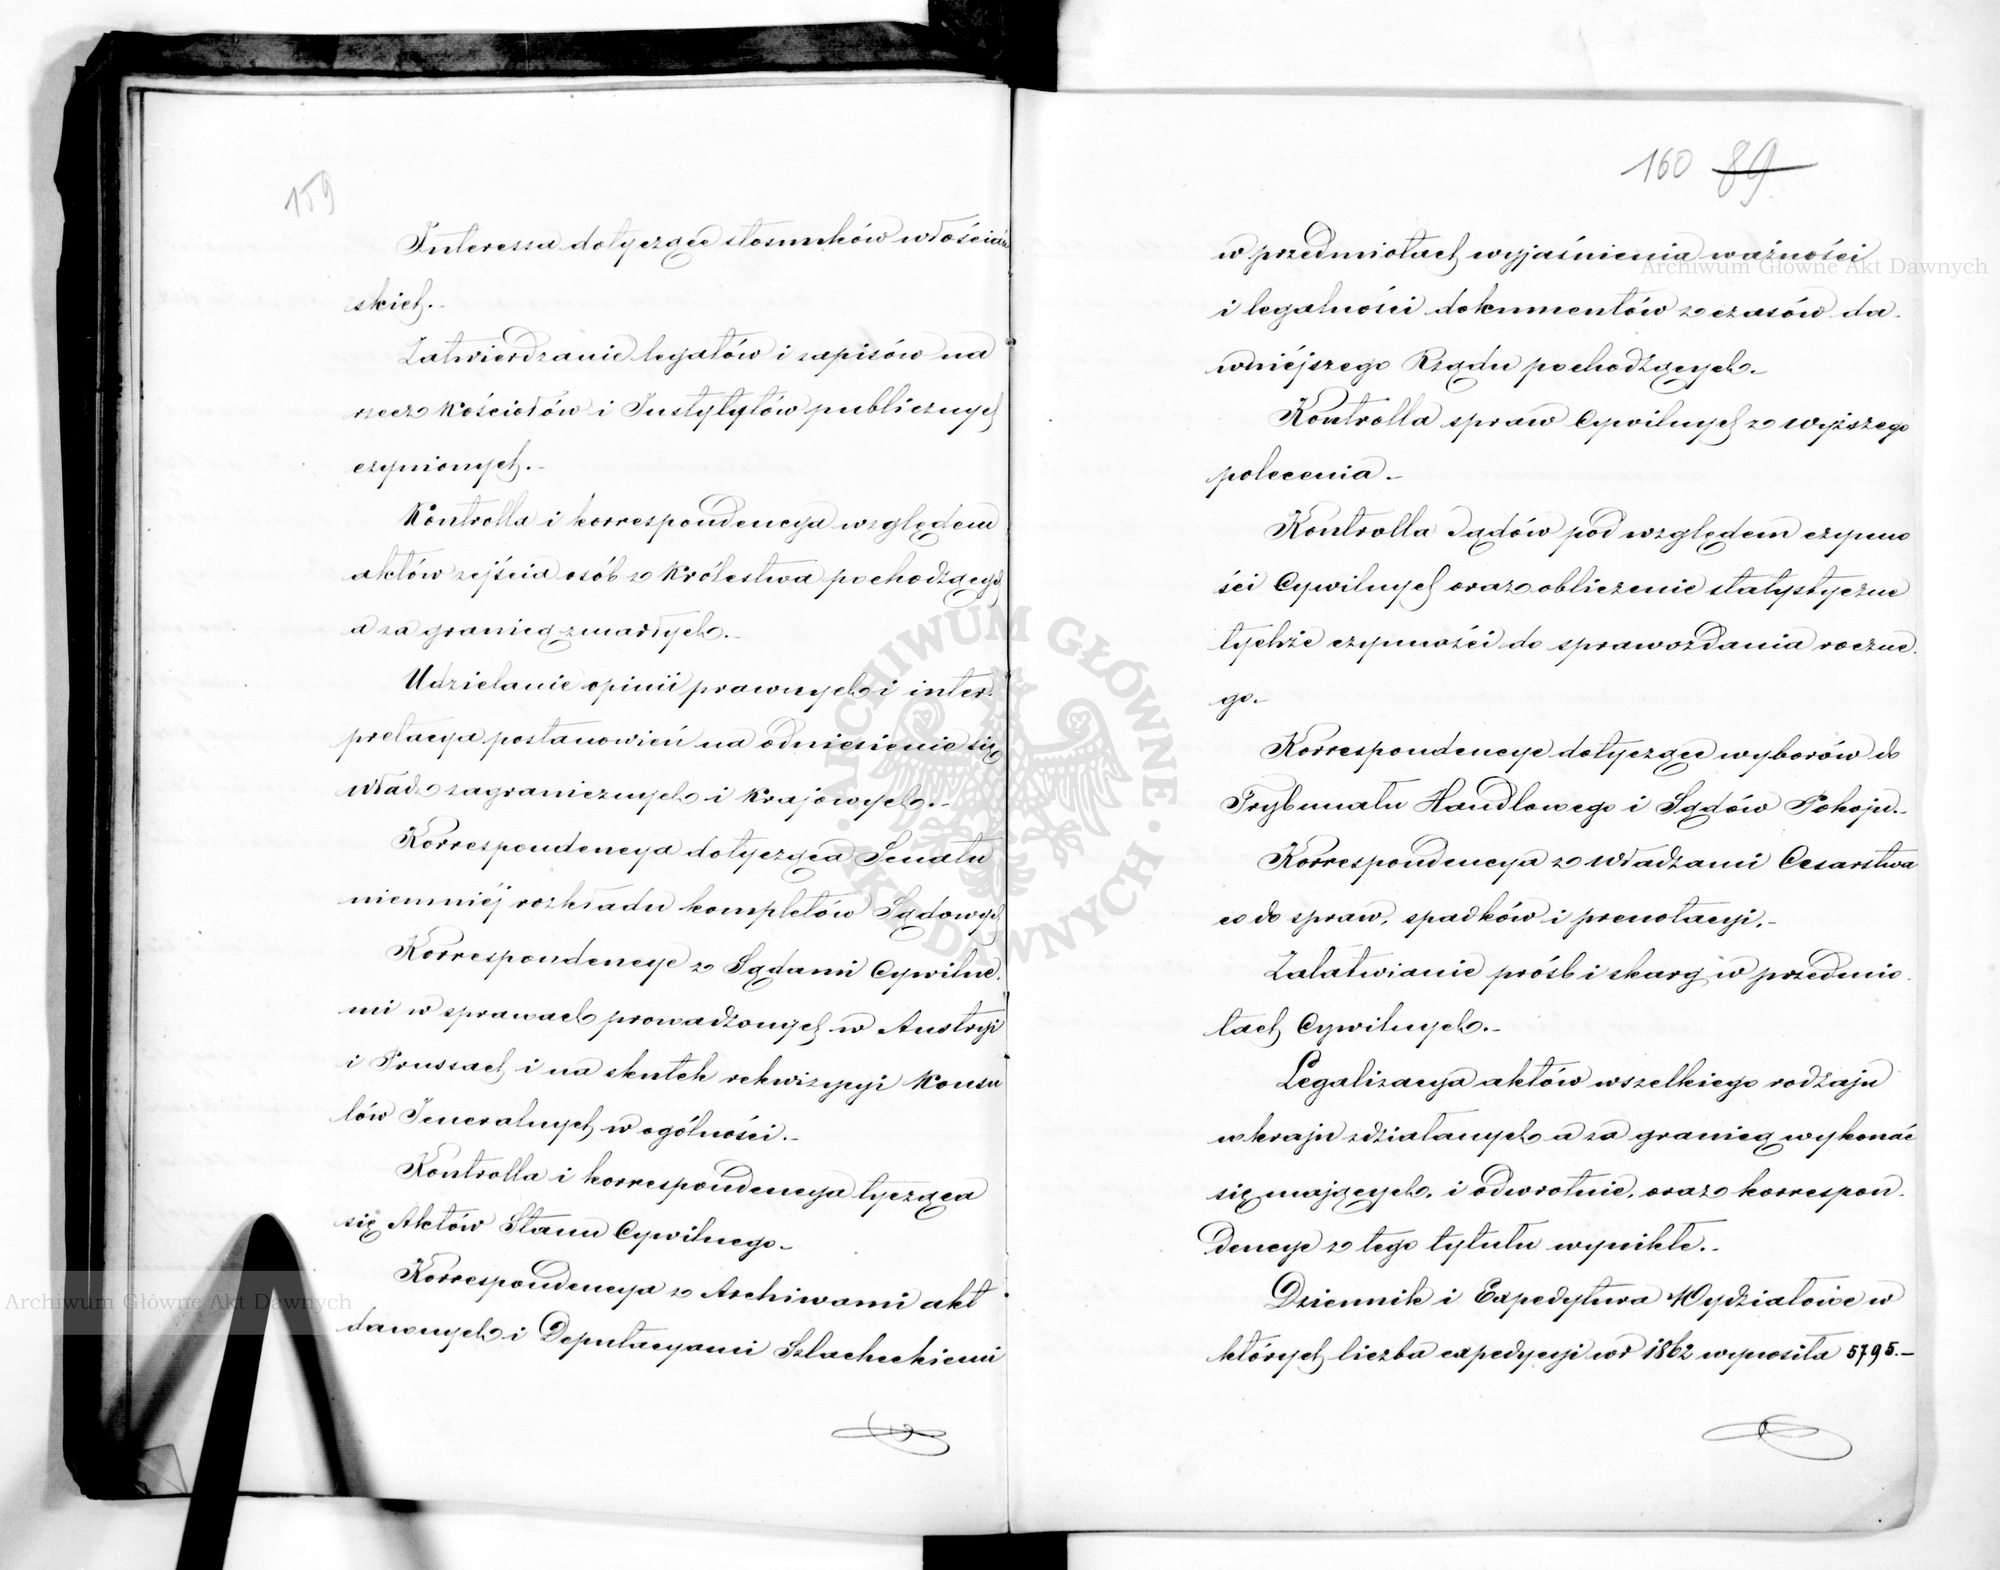 159
Interessa dotyczące stosunków włościań
skich.-
Zatwierdzanie legatów i zapisów na
rzecz Kościołów i Instytytów publicznych
czynionych.-
Kontrolla i korrespondencya względem
aktów zejścia osób z Królestwa pochodzących
a za granicą zmarłych.-
Udzielanie opinii prawnych i inter-
pretacya postanowień na odniesienie się
władz zagranicznych i Krajowych.-
Korrespondencya dotycząca Senatu
niemniéj rozkładu kompletów Sądowych
Korrespondencye z Sądami Cywilne-
mi w sprawach prowadzonych w Austryi
i Prussach i na skutek rekwizycyi Konsu
lów Jeneralnych w ogólności.-
Kontrolla i korrespondencya tycząca
się Aktów Stanu Cywilnego-
Korrespondencya z Archiwami akt
dawnych i Deputacyami Szlacheckiemi
160 89
w przedmiotach wyjaśnienia ważności
i legalności dokumentów z czasów da-
wniéjszego Rządu pochodzących.-
Kontrolla spraw Cywilnych z wyższego
polecenia.-
Kontrolla Sądów pod względem czynno
ści Cywilnych oraz obliczenie statystyczne
tychże czynności do sprawozdania roczne-
go.-
Korrespondencye dotyczące wyborów do
Trybunału Handlowego i Sądów Pokoju.-
Korrespondencya z władzami Cesarstwa
co do spraw, spadków i prenotacyi.-
Załatwianie próśb i skarg w przedmio-
tach Cywilnych.-
Legalizacya aktów wszelkiego rodzaju
w kraju zdziałanych a za granicą wykonać
się mających, i odwrotnie, oraz korrespon-
dencye z tego tytułu wynikłe.-
Dziennik i Expedytura Wydziałowe w
których liczba expedycyi w r 1862 wynosiła 5795.-
Archiwum Główne Akt Dawnych
Archiwum Główne Akt Dawnych
ARCHIWUM GŁÓWNE · AKT DAWNYCH ·